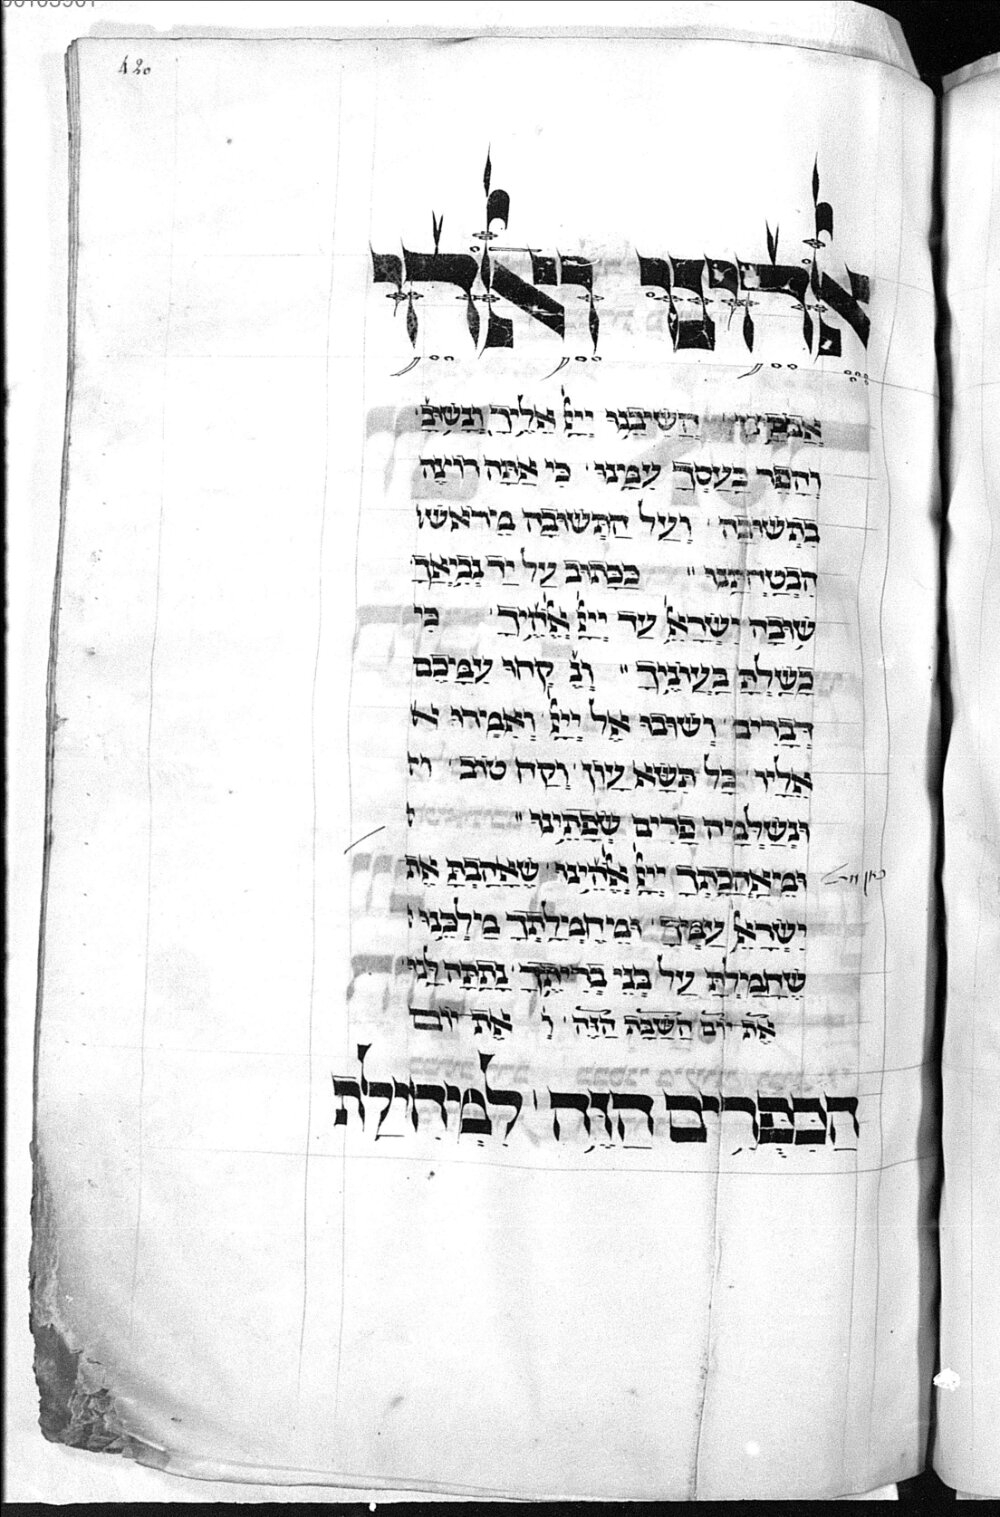 420
אלהינו ואלהי
אבותינו השיבנו ייי אליך ונשוב
והפר כעסך עמנו כי אתה רוצה
בתשובה ועל התשובה מיראשו
הבטחתנו ככתוב על יד נביאך
שובה ישראל עד ייי אלהיך כי
כשלת בעוניך ונ קחו עמכם
דברים ושובו אל ייי ואמרו א
אליו כל תשא עון וקח טוב ו
ונשלמה פרים שפתינו
ומיאהבתך ייי אלהינו שאהבת את
ישראל עמך ומיחמלתך מילכנו
שחמלת על בני בריתך נתתה לנו
את יום השבת הזה ו את יום
הכפרים הזה למיחילת